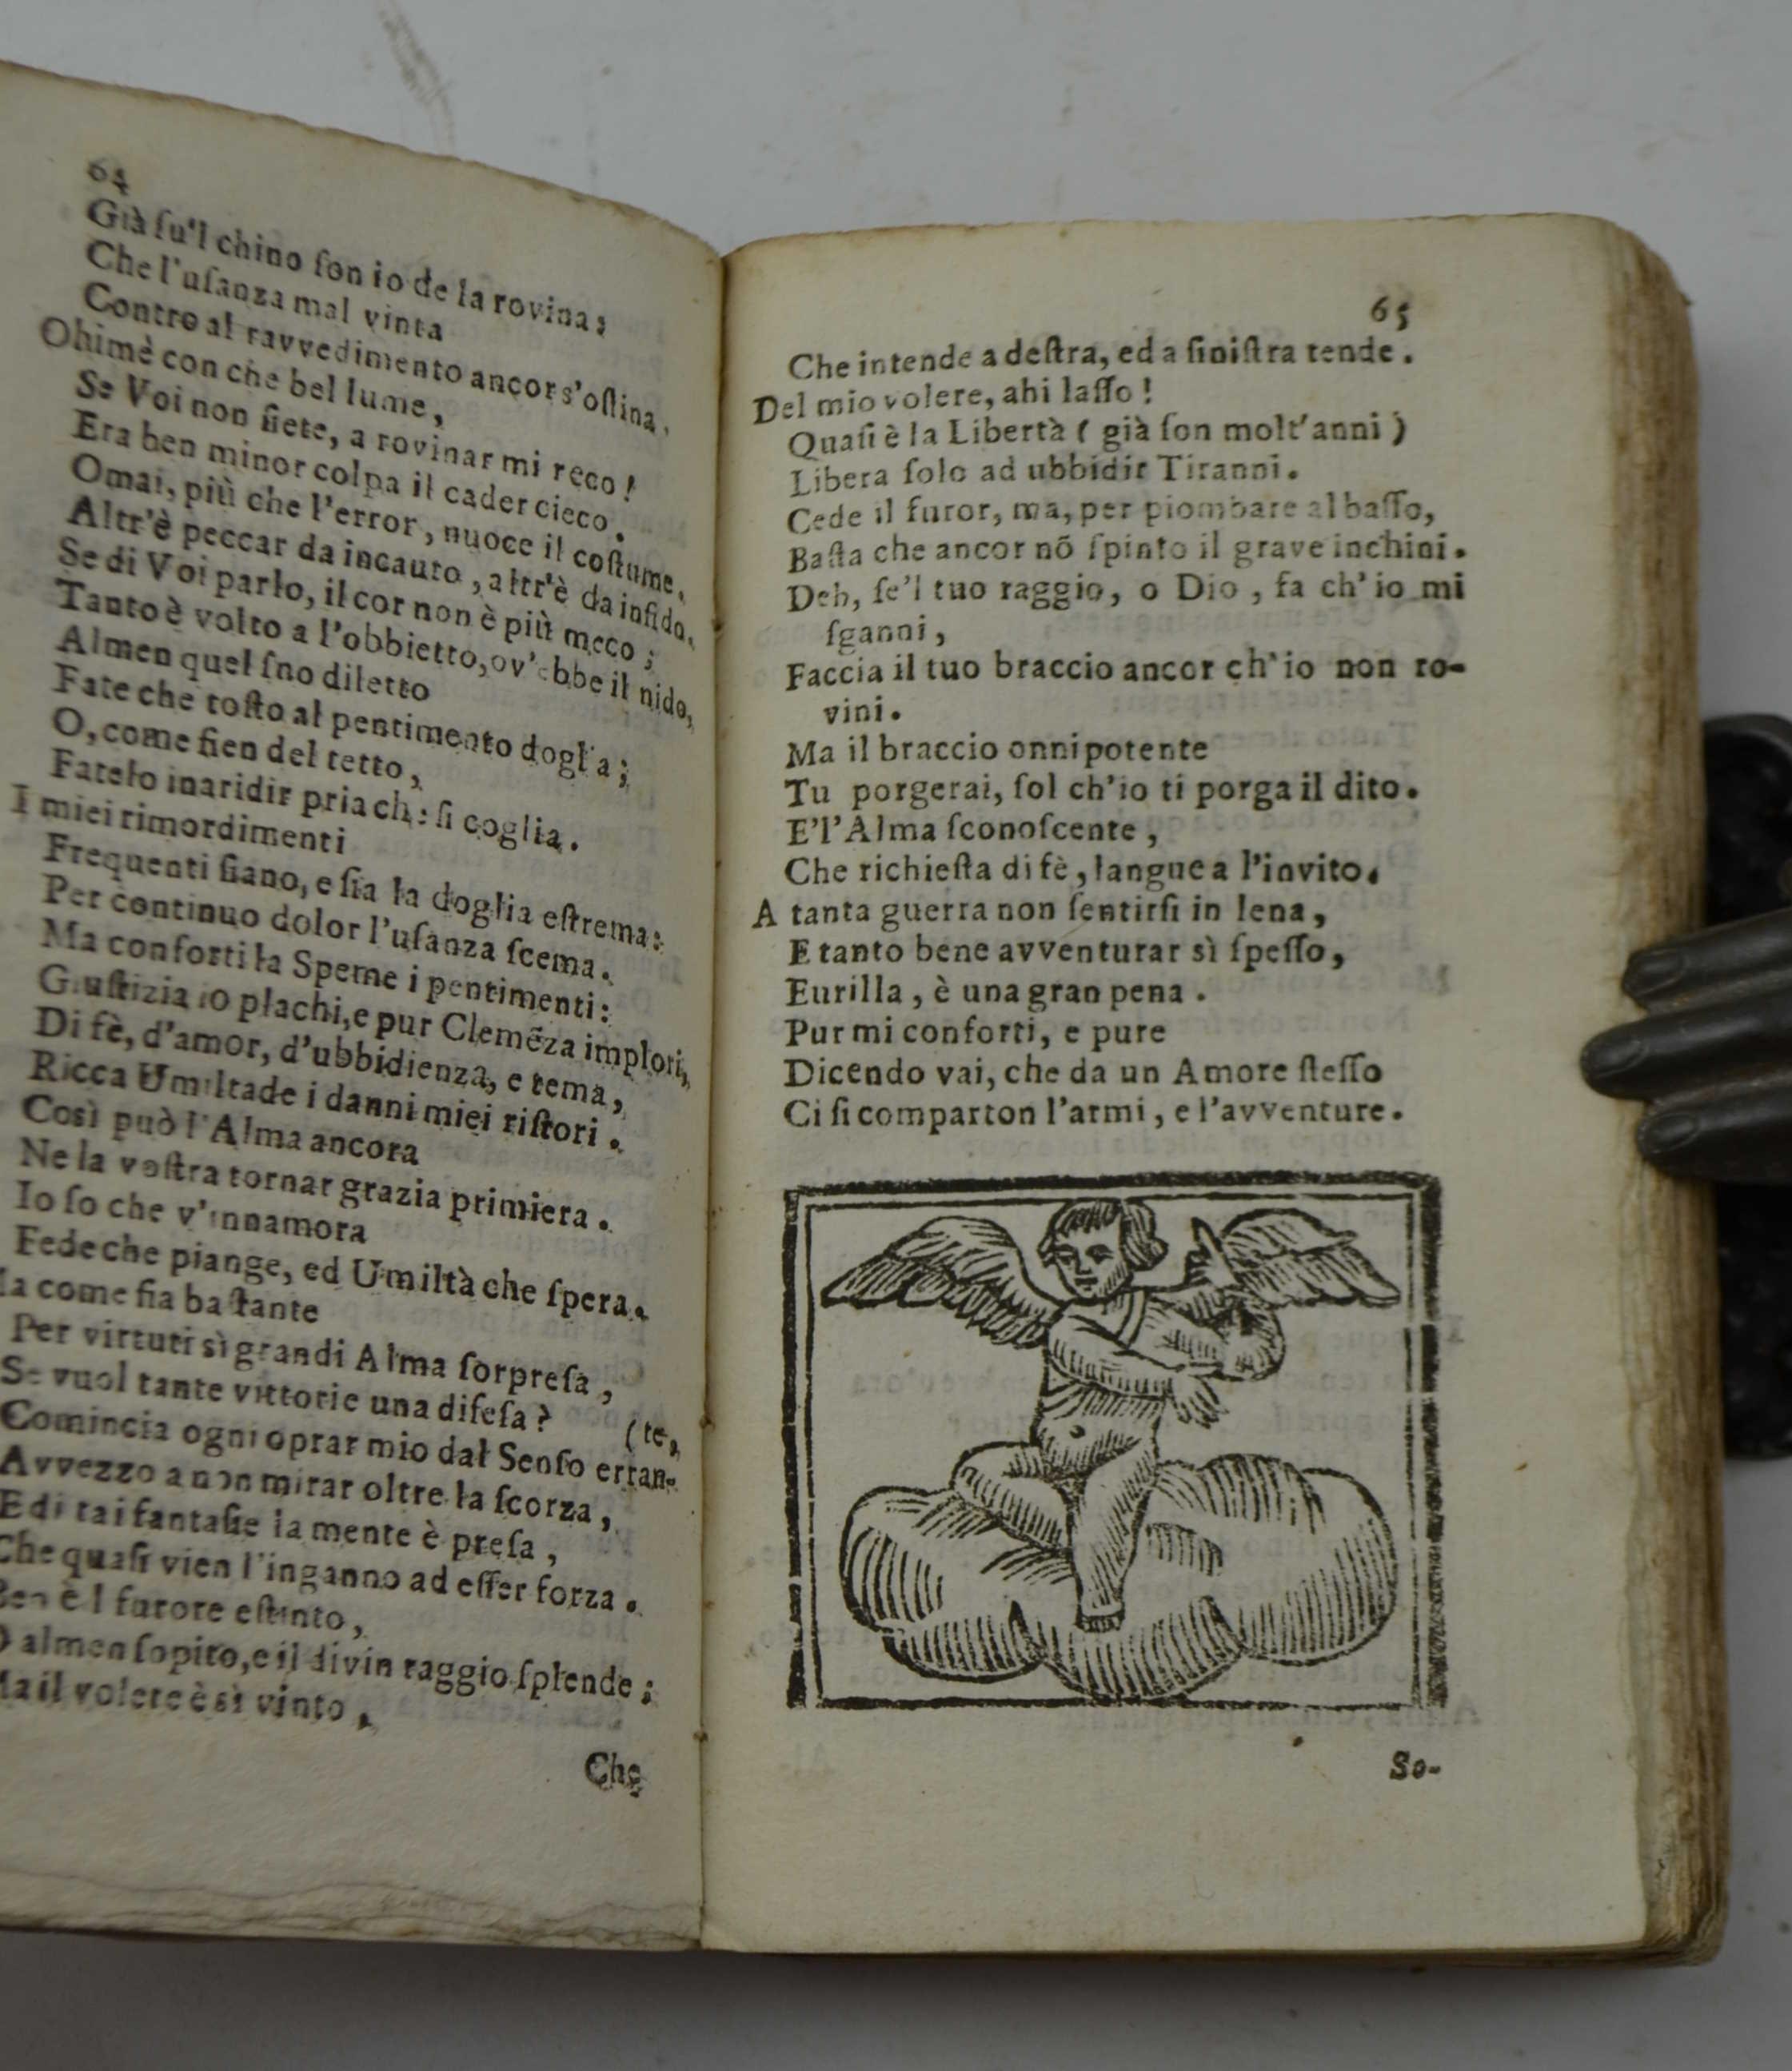 64
Già ſu'l chino ſon io de la rovina;
Che l'uſanza mal vinta
Contro al ravvedimento ancor s'oſtina.
Ohimè con che bel lume,
Se Voi non ſiete, a rovinar mi reco!
Era ben minor colpa il cader cieco.
Omai, più che l'error, nuoce il coſtume.
Altr'è peccar da incauto, altr'è da infido.
Se di Voi parlo, il cor non è più meco;
Tanto è volto a l'obbietto, ov'ebbe il nido,
Almen quel ſno diletto
Fate che toſto al pentimento doglia;
O, come fien del tetto,
Fatelo inaridir pria che ſi coglia.
I miei rimordimenti
Frequenti ſiano, e ſia la doglia eſtrema:
Per continuo dolor l'uſanza ſcema.
Ma conforti la Speme i pentimenti:
Giuſtizia io plachi, e pur Clemẽza implori,
Di fè, d'amor, d'ubbidienza, e tema,
Ricca Umiltade i danni miei riſtori.
Così può l'Alma ancora
Ne la voſtra tornar grazia primiera.
Io ſo che v'innamora
Fede che piange, ed Umiltà che ſpera.
Ma come fia baſtante
Per virtuti sì grandi Alma ſorpreſa,
Se vuol tante vittorie una difeſa?
(te,
Comincia ogni oprar mio dal Senſo erran-
Avvezzo a non mirar oltre la ſcorza,
E di tai fantaſie la mente è preſa,
Che quaſi vien l'inganno ad eſſer forza.
Ben è'l furore eſtinto,
O almen ſopito, e il divin raggio ſplende;
Ma il volere è sì vinto,
Che
65
Che intende a deſtra, ed a ſiniſtra tende.
Del mio volere, ahi laſſo!
Quaſi è la Libertà ( già ſon molt'anni )
Libera ſolo ad ubbidir Tiranni.
Cede il furor, ma, per piombare al baſſo,
Baſta che ancor nõ ſpinto il grave inchini.
Deh, ſe'l tuo raggio, o Dio, fa ch'io mi
ſganni,
Faccia il tuo braccio ancor ch'io non ro-
vini.
Ma il braccio onnipotente
Tu porgerai, ſol ch'io ti porga il dito.
E'l'Alma ſconoſcente,
Che richieſta di fè, langue a l'invito.
A tanta guerra non ſentirſi in lena,
E tanto bene avventurar sì ſpeſſo,
Eurilla, è una gran pena.
Pur mi conforti, e pure
Dicendo vai, che da un Amore ſteſſo
Ci ſi comparton l'armi, e l'avventure.
So-